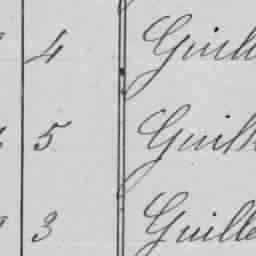 4 Guil
5 Guill
3 Guille